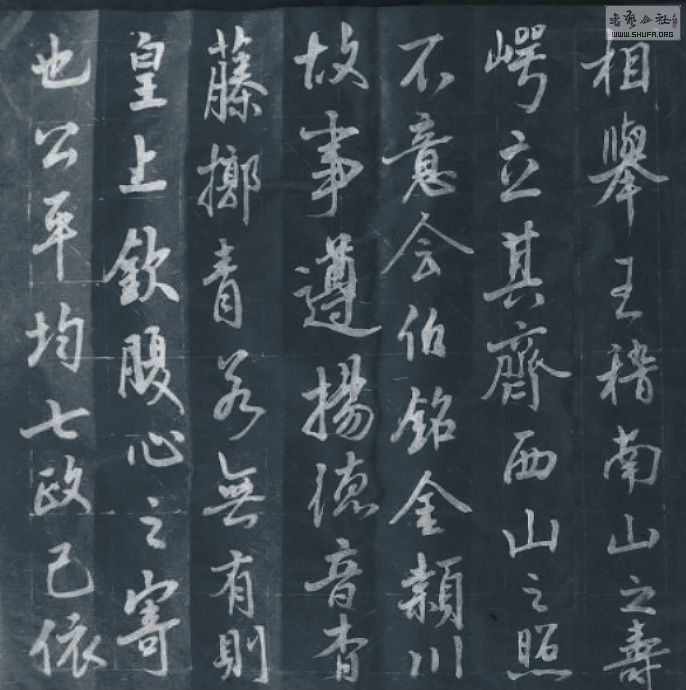 相舉王稽南山之壽
崿立其齊西山之照
不意会伯銘金潁川
故事遵揚德音杳
藤擲青若無有則
皇上欽腹心之寄
也公平均七政已依
書藝公社
WWW.SHUFA.ORG